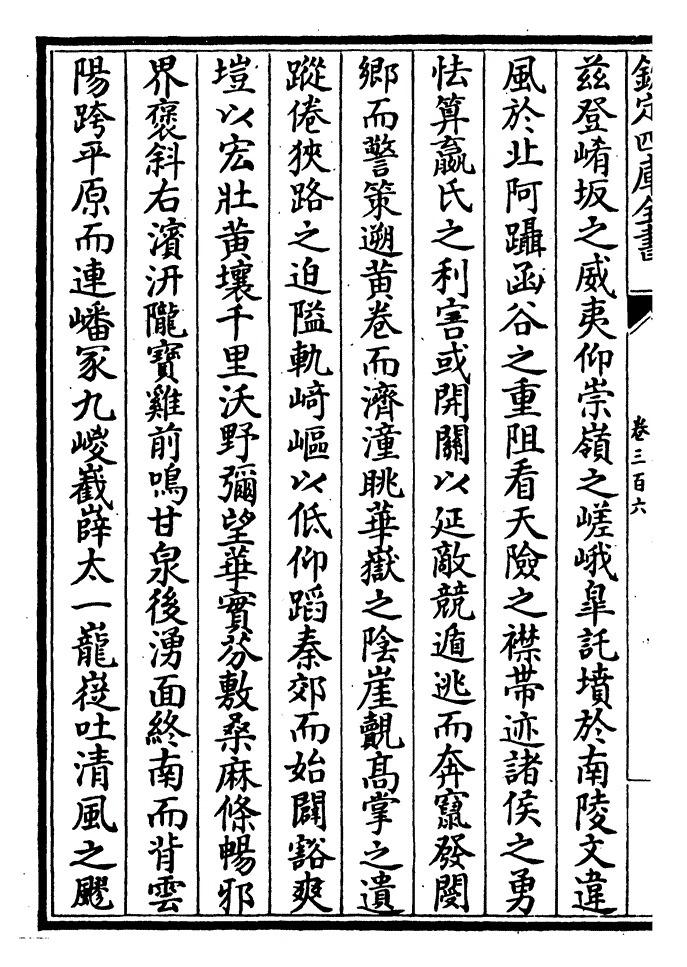 欽定四庫全書
卷三百六
茲登崤坂之威夷仰崇嶺之嵯峨臯託墳於南陵文違
風於北阿躡函谷之重阻看天險之襟帶迹諸侯之勇
怯算嬴氏之利害或開關以延敵競遁逃而奔竄發閿
鄉而警策遡黄巷而濟潼眺華嶽之陰崖觀高掌之遺
蹤倦狹路之迫隘軌﨑嶇以低仰蹈秦郊而始闢豁爽
塏以宏壯黄壤千里沃野彌望華實芬敷桑麻條暢邪
界褒斜右濱汧隴寶雞前鳴甘泉後湧面終南而背雲
陽跨平原而連嶓冢九嵕嶻嶭太一巃嵸吐清風之飂